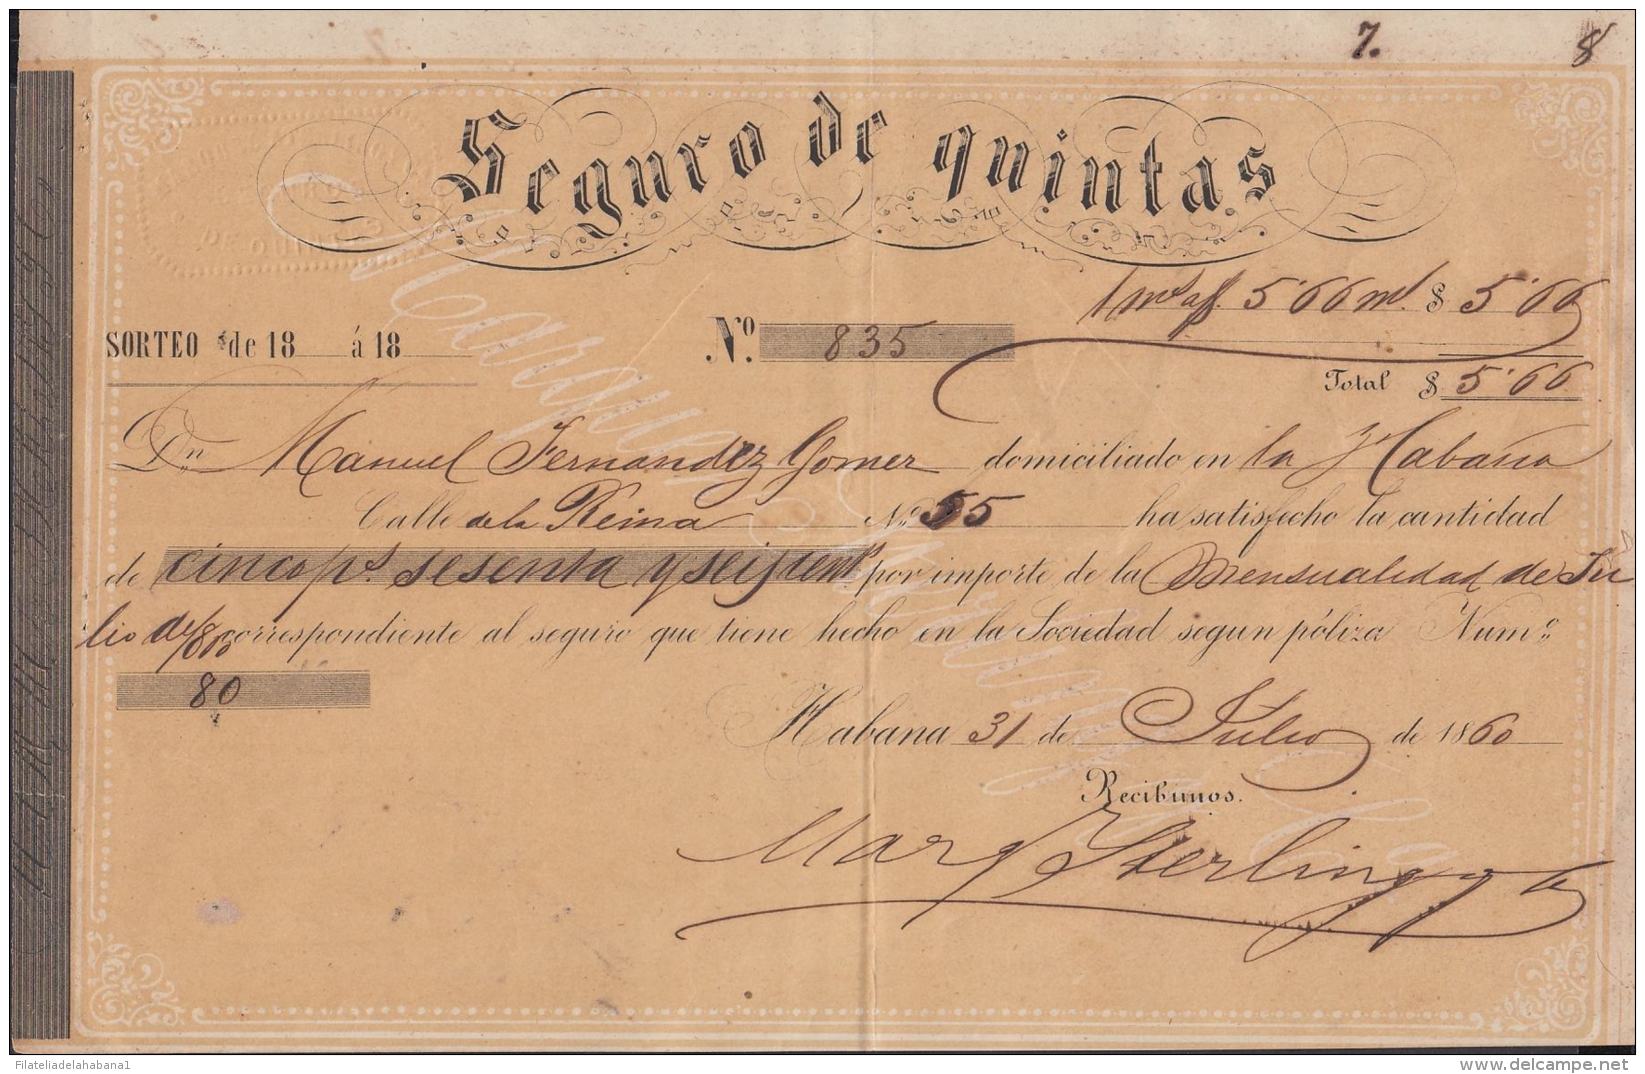 7. 8
Seguro de quintas
5'66 $ 5'66
SORTEO de 18 á 18
Nº. 835
Total $ 5'66
Dn Manuel Fernandez Gomez domiciliado en la Habana
Calle de la Reina Nº 55 ha satisfecho la cantidad
de cinco ps. sesenta y seis cents por importe de la Mensualidad de Ju
lio de 1860 correspondiente al seguro que tiene hecho en la Sociedad segun póliza Numº
80
Habana 31 de Julio de 1860
Recibimos.
Marq Sterling y Ca
Filateliadelahabana1
www.delcampe.net